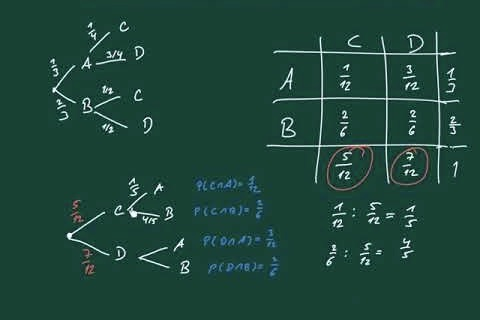 1/4 C
1/3 A 3/4 D
2/3 B 1/2 C
1/2 D
C D
A 1/12 3/12 1/3
B 2/6 2/6 2/3
5/12 7/12 1
5/12 C 1/5 A
4/5 B
7/12 D A
B
P(C∩A)=1/12
P(C∩B)=2/6
P(D∩A)=3/12
P(D∩B)=2/6
1/12 : 5/12 = 1/5
2/6 : 5/12 = 4/5